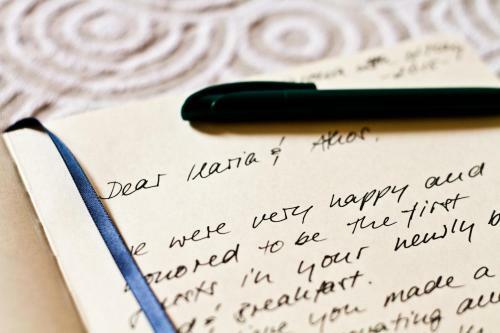 Dear Ilaria &
we were very happy and
honored to be the first
guests in your newly b
d & Breakfast.
you made a